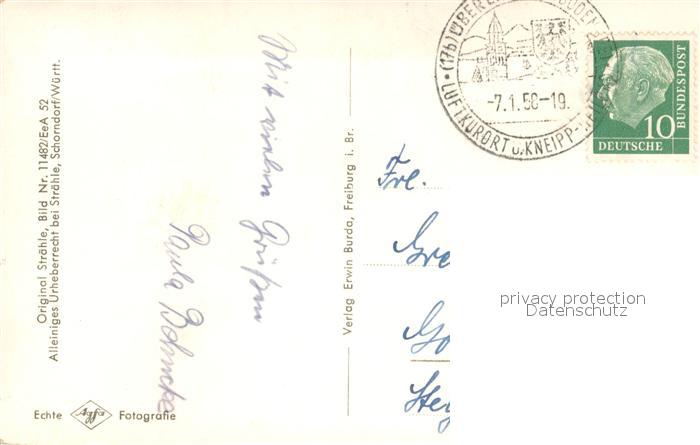 Original Strähle, Bild Nr. 11482/EeA 52
Alleiniges Urheberrecht bei Strähle, Schorndorf/Württ.
Mit vielen Grüßen
Paula
Echte Agfa Fotografie
Verlag Erwin Burda, Freiburg i. Br.
(17b) ÜBERL BODEN
-7.1.58-19
LUFTKURORT u. KNEIPP-
10
DEUTSCHE
BUNDESPOST
Frl.
Gre
Go
privacy protection
Datenschutz